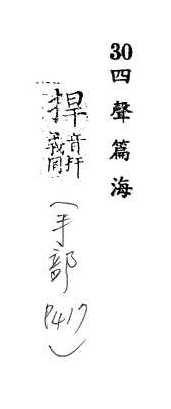 30四聲篇海
捍音扞義同(手部P417)